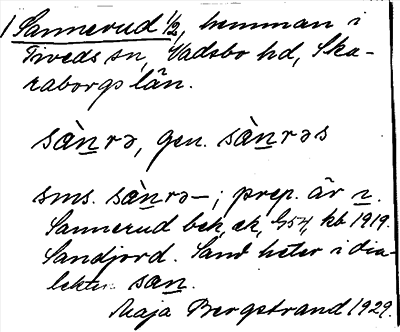 1 Sannerud 1/2, hemman i
Tiveds sn, Vadsbo hd, Ska-
raborgs län.
sànrə, gen. sànrəs
sms. sànrə-; prep. är
Sannerud bek, ek, G54, kb 1919.
Sandjord. Sand heter i dia-
lekten san.
Maja Bergstrand 1929.